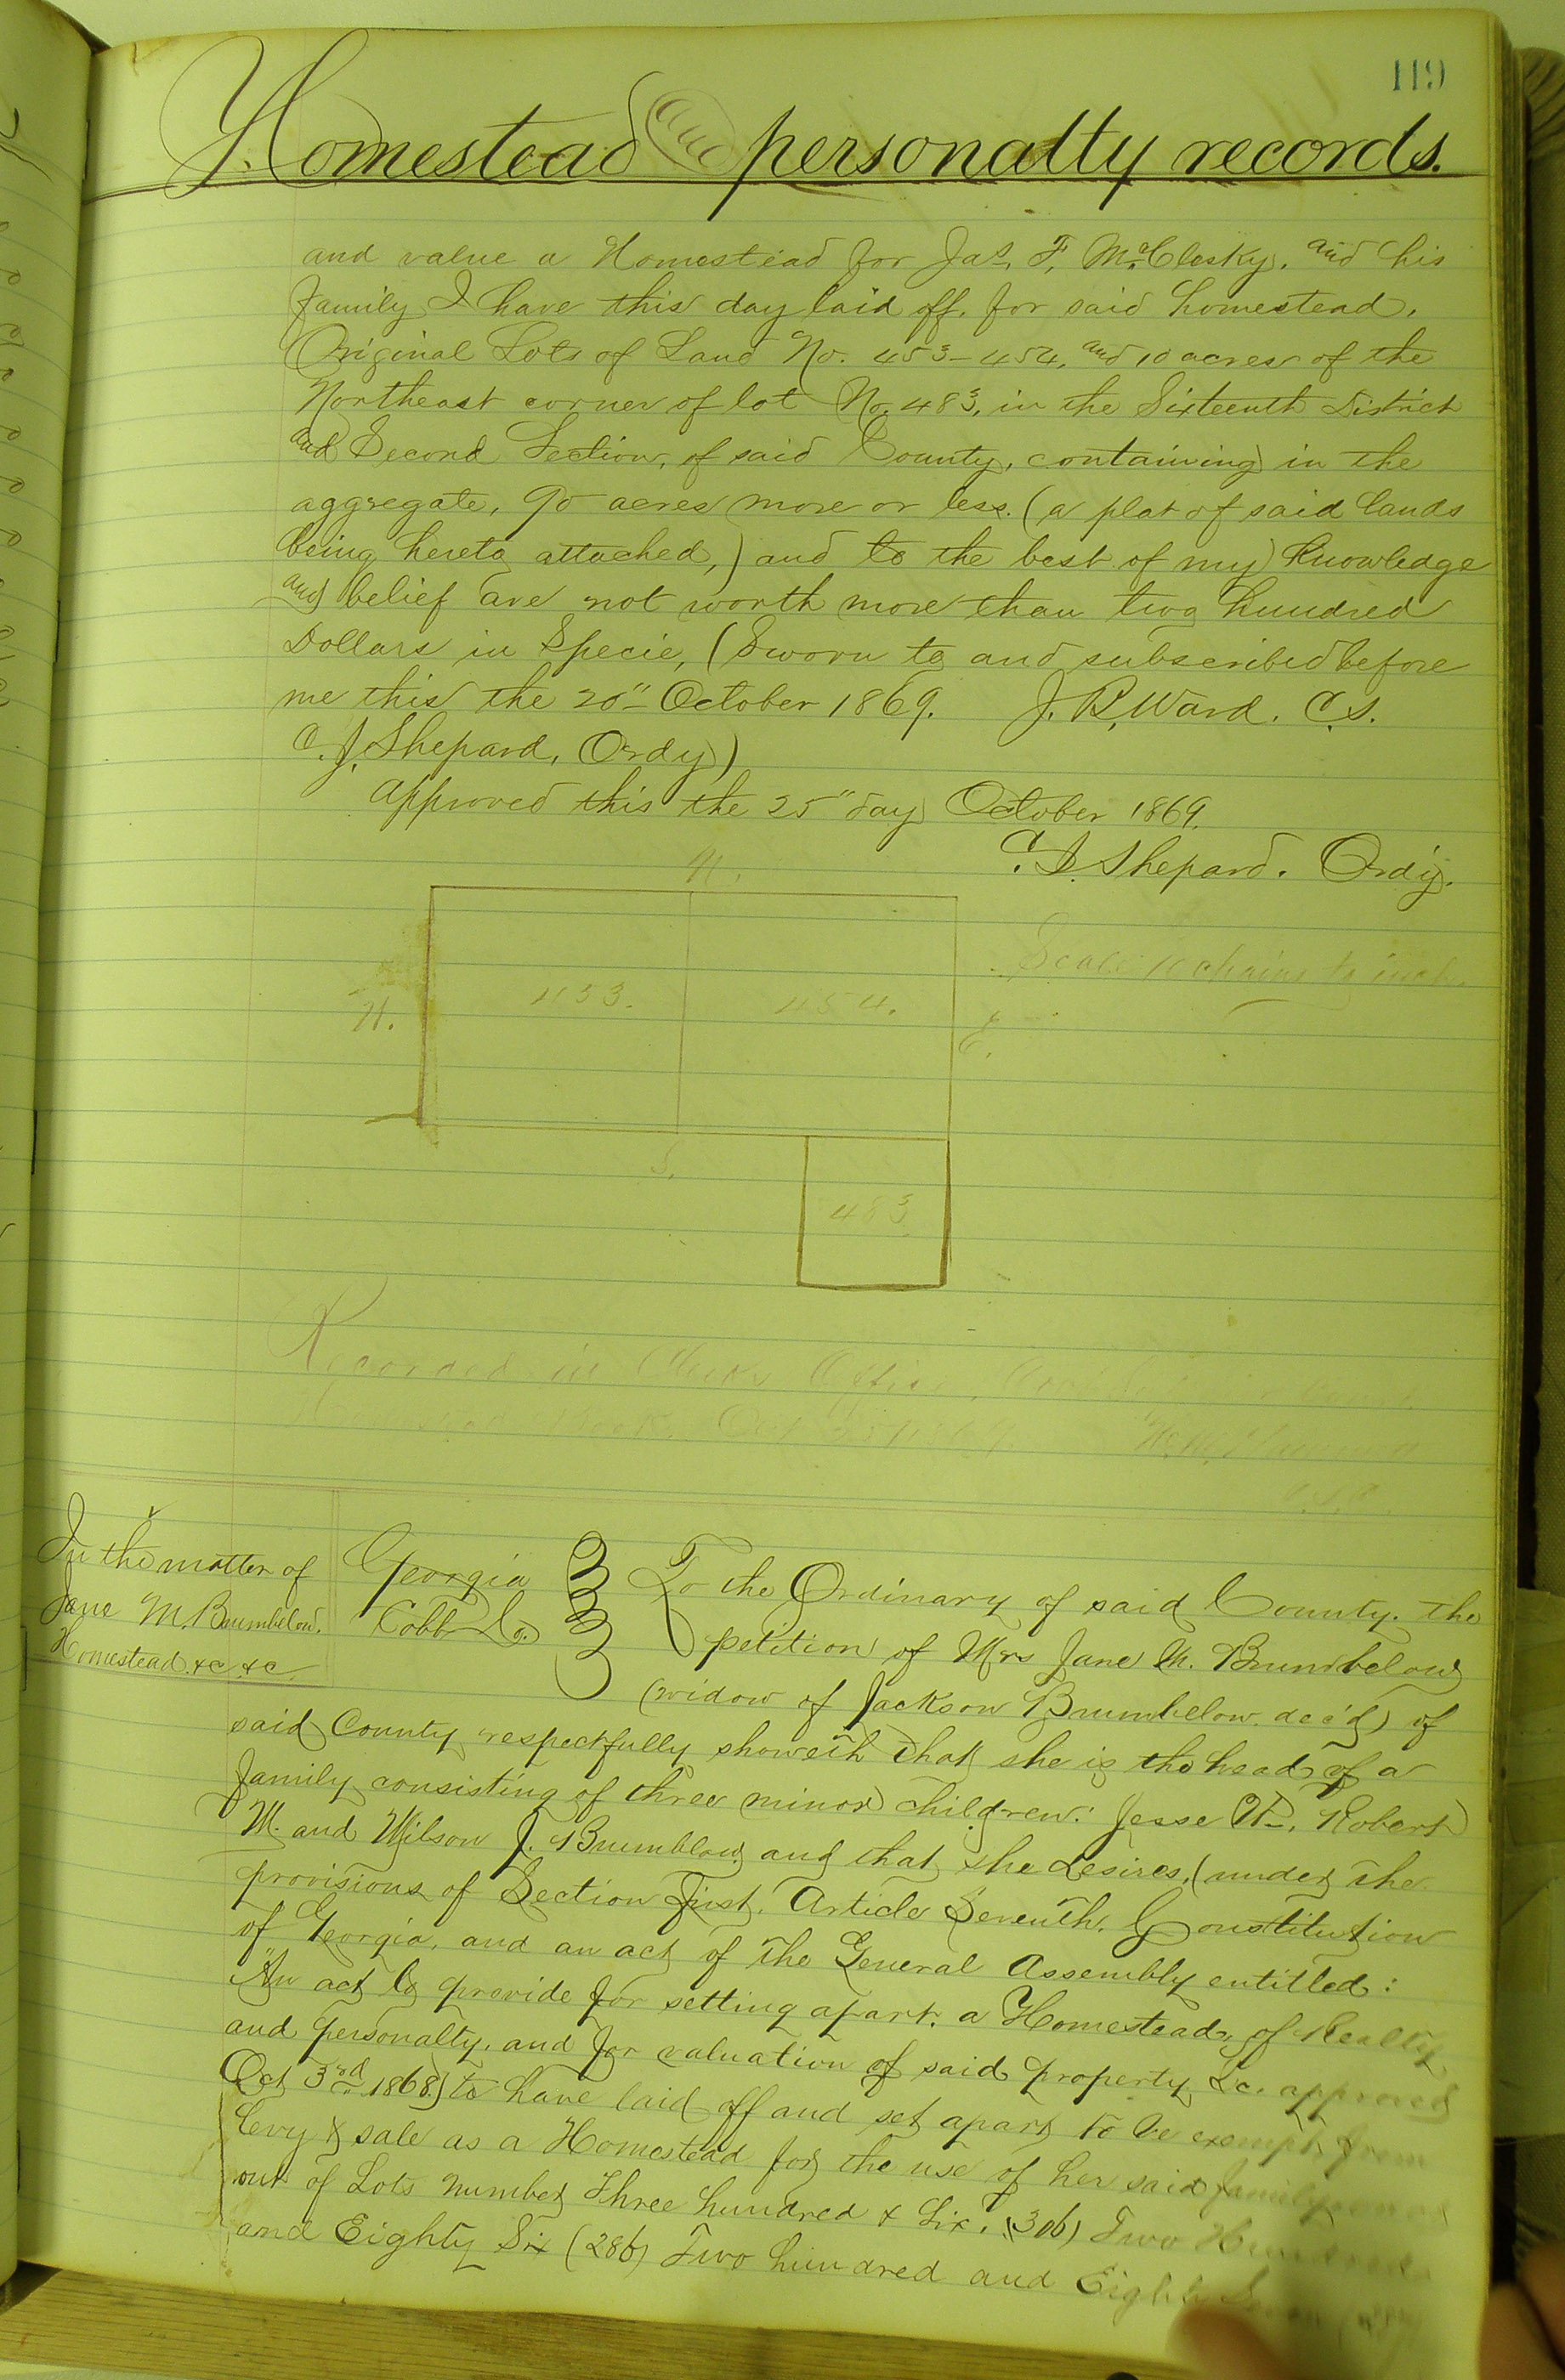 119
Homestead and personalty records.
and value a Homestead for Jas. F. McClesky. and his
family I have this day laid off. for said homestead.
Original Lots of Land No. 453-454. and 10 acres of the
Northeast corner of lot No. 483, in the Sixteenth District
and Second Section, of said County, containing in the
aggregate, 90 acres more or less. (a plat of said lands
being hereto attached,) and to the best of my knowledge
and belief are not worth more than two hundred
Dollars in Specie, (Sworn to and subscribed before
me this the 20" October 1869. J. R. Ward. C.S.
C. J. Shepard, Ordy)
approved this the 25" day October 1869.
C. J. Shepard. Ordy.
N.
Scale 10 chains to inch.
453. 454.
W. E.
S.
483
Recorded in Clerks Office,
Homestead Book. Oct 25 1869.
In the matter of
Jane M. Brumbelow.
Homestead &c &c
Georgia
Cobb Co.
To the Ordinary of said County. the
petition of Mrs Jane M. Brumbelow
(widow of Jackson Brumbelow. dec'd) of
said County respectfully showeth that she is the head of a
family consisting of three minor children: Jesse W., Robert
M. and Wilson J. Brumblow and that she desires, (under the
provisions of Section first. Article Seventh. Constitution
of Georgia, and an act of the General Assembly entitled:
"An act to provide for setting apart. a Homestead, of Realty
and personalty, and for valuation of said property &c. approved
Oct 3rd 1868) to have laid off and set apart to be exempt from
levy & sale as a Homestead for the use of her said family
out of Lots number Three hundred & Six. (306) Two Hundred
and Eighty Six (286) Two hundred and Eighty Seven